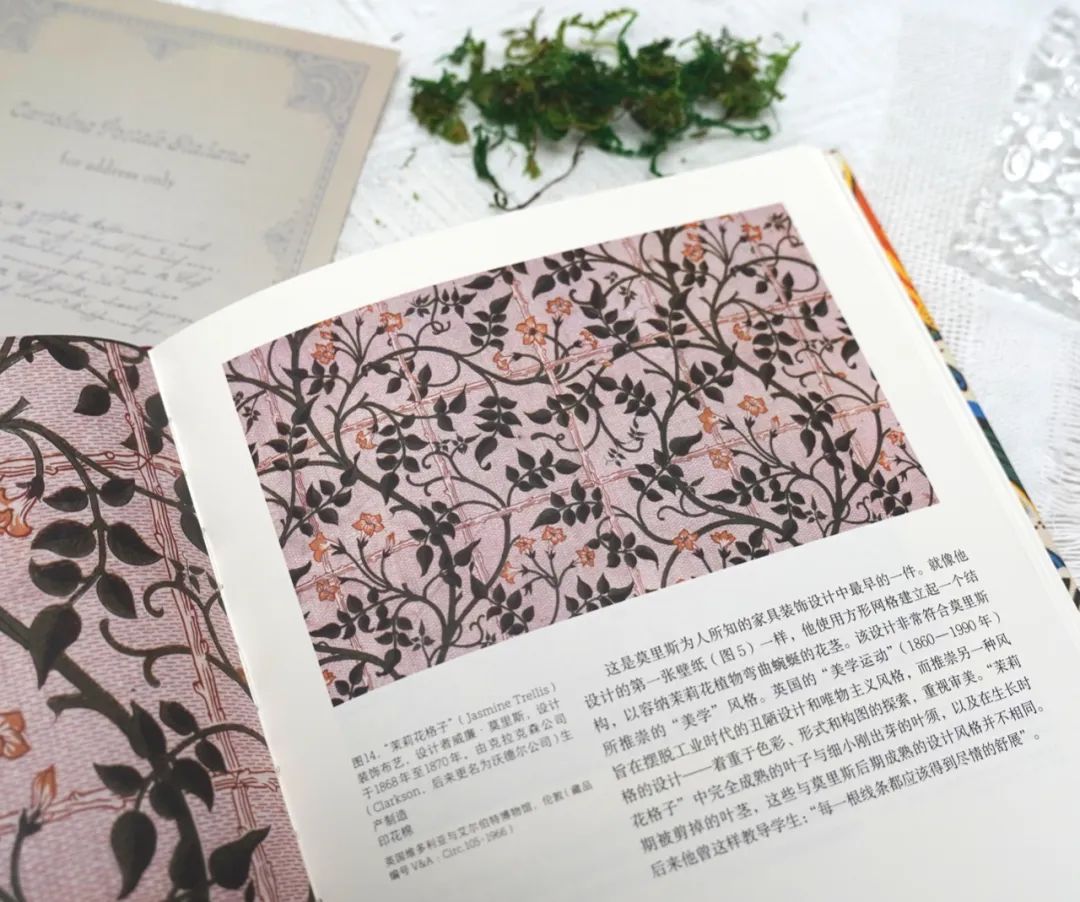 for address only
图14. “茉莉花格子”（Jasmine Trellis）
装饰布艺，设计者威廉·莫里斯，设计
于1868年至1870年，由克拉克森公司
（Clarkson，后来更名为沃德尔公司）生
产制造
印花棉
英国维多利亚与艾尔伯特博物馆，伦敦（藏品
编号 V&A：Circ.105-1966）
这是莫里斯为人所知的家具装饰设计中最早的一件。就像他
设计的第一张壁纸（图5）一样，他使用方形网格建立起一个结
构，以容纳茉莉花植物弯曲蜿蜒的花茎。该设计非常符合莫里斯
所推崇的“美学”风格。英国的“美学运动”（1860—1990年）
旨在摆脱工业时代的丑陋设计和唯物主义风格，而推崇另一种风
格的设计——着重于色彩、形式和构图的探索，重视审美。“茉莉
花格子”中完全成熟的叶子与细小刚出芽的叶须，以及在生长时
期被剪掉的叶茎，这些与莫里斯后期成熟的设计风格并不相同。
后来他曾这样教导学生：“每一根线条都应该得到尽情的舒展”。